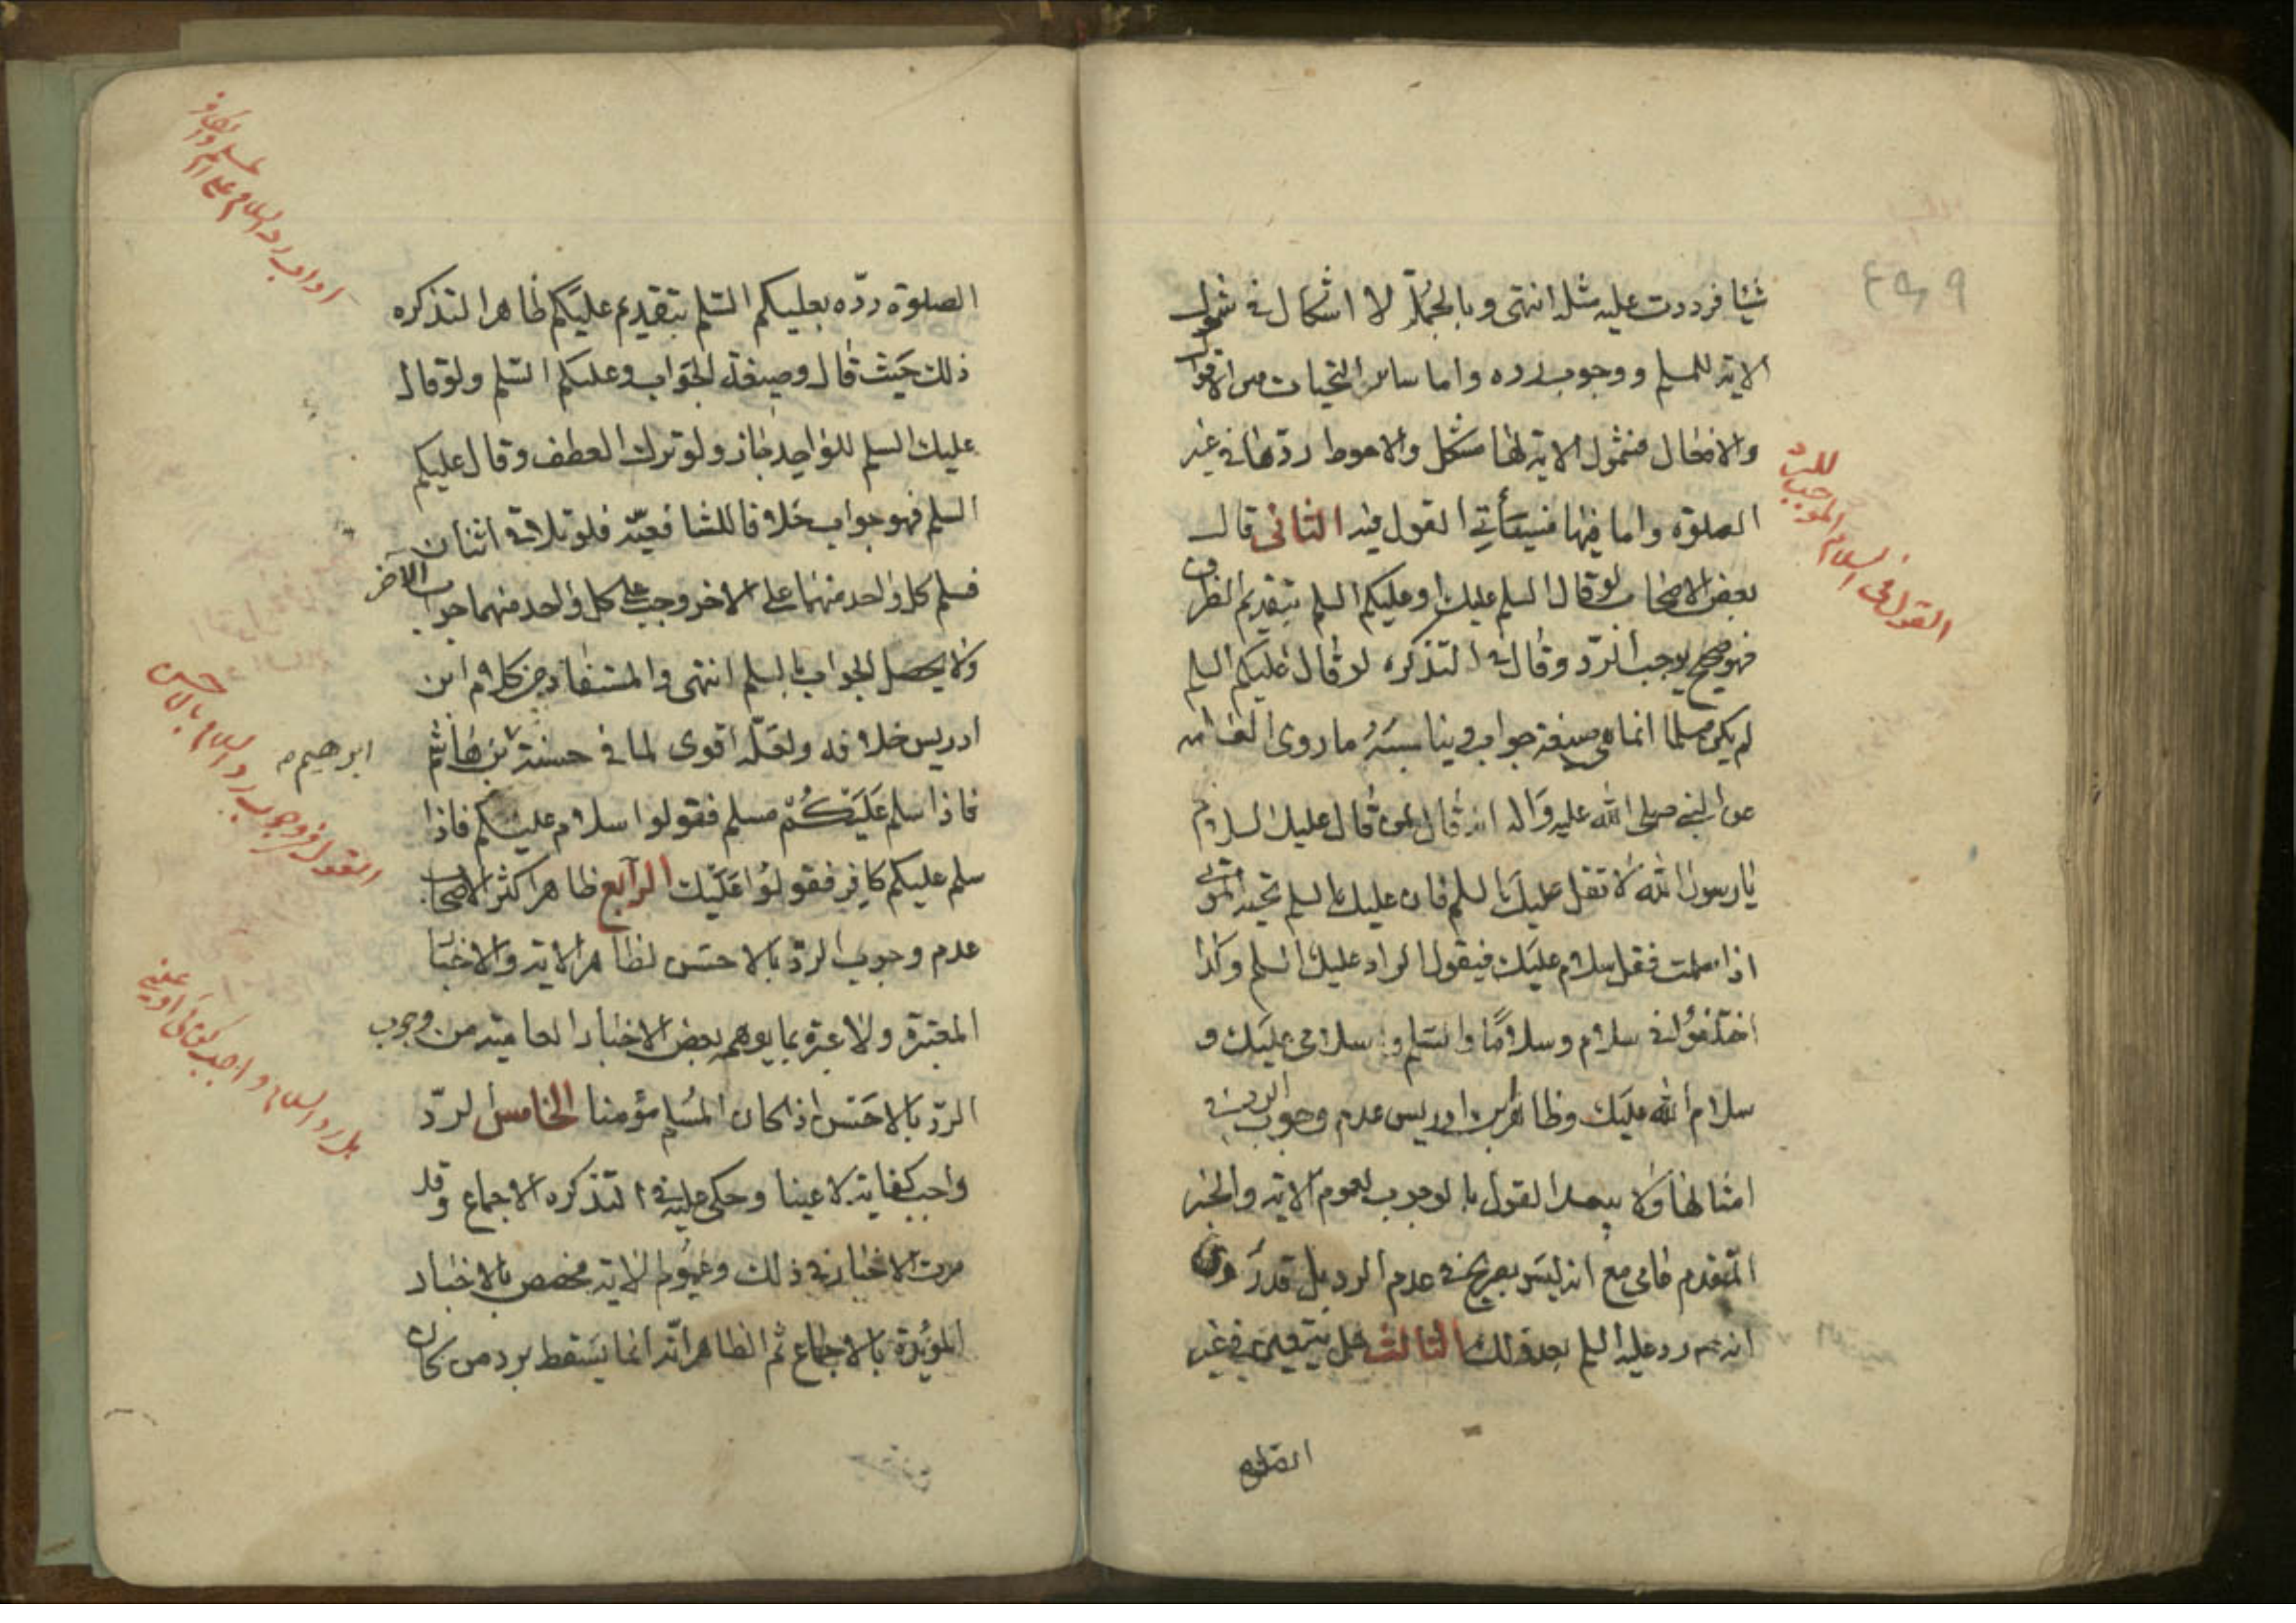 شيئا فرددت عليه مثله انتهى وبالجملة لا اشكال في شمول
الاية للسلم ووجوب رده واما ساير التحيات من الاقوال
والافعال فشمول الاية لها مشكل والاحوط ردّها في غير
الصلوة واما فيها فسيأتي القول فيه الثاني قال
بعض الاصحاب لو قال السلم عليك او عليكم السلم بتقديم الظرف
فهو صحيح يوجب الردّ وقال في التذكره لو قال عليكم السلم
لم يكن مسلما انما هي صيغة جواب ويناسبه ما روى العامه
عن النبي صلى الله عليه واله انه قال لمن قال عليك السلام
يا رسول الله لا تقل عليك السلم فان عليك السلم تحية الموتى
اذا سلمت فقل سلام عليك فيقول الراد عليك السلم وكذا
اختلفوا في سلام وسلاما والسلم وسلامى عليك و
سلام الله عليك وظاهر ابن ادريس عدم وجوب الرد في
امثالها ولا يبعد القول بالوجوب لعموم الاية والخبر
المتقدم عامى مع انه ليس بصريح في عدم الرد بل قدر
انه رد عليه السلم بعد ذلك الثالث هل يتعين في غير
الصلوة
القول في السلام الموجب للرد
٤٩٩
الصلوة ردّه بعليكم السلم بتقديم عليكم ظاهر التذكره
ذلك حيث قال وصيغة الجواب وعليكم السلم ولو قال
عليك السلم للواحد جاز ولو ترك العطف وقال عليكم
السلم فهو جواب خلافا للشافعيّه فلو تلاقى اثنان
فسلم كل واحد منهما على الاخر وجب على كل واحد منهما جواب الآخر
ولا يحصل الجواب بالسلم انتهى والمستفاد من كلام ابن
ادريس خلافه ولعلّه اقوى لما في حسنة بن هاشم
ابرهيم
فاذا سلم عليكم مسلم فقولوا سلام عليكم فاذا
سلم عليكم كافر فقولوا عليك الرابع ظاهر اكثر الاصحاب
عدم وجوب الردّ بالاحسن لظاهر الاية والاخبار
المعتبرة ولا عبرة بما يوهمه بعض الاخبار العامية من وجوب
الردّ بالاحسن اذا كان المسلم مؤمنا الخامس الردّ
واجب كفاية لا عينا وحكى عليه في التذكره الاجماع وقد
مرت الاخبار في ذلك وعموم الاية مخصص بالاخبار
المؤيدة بالاجماع ثم الظاهر انّه انما يسقط برد من كان
اداب رد السلام على المسلم والكافر
القول في وجوب رد السلام بالاحسن
هل رد السلام واجب كفائى او عينى